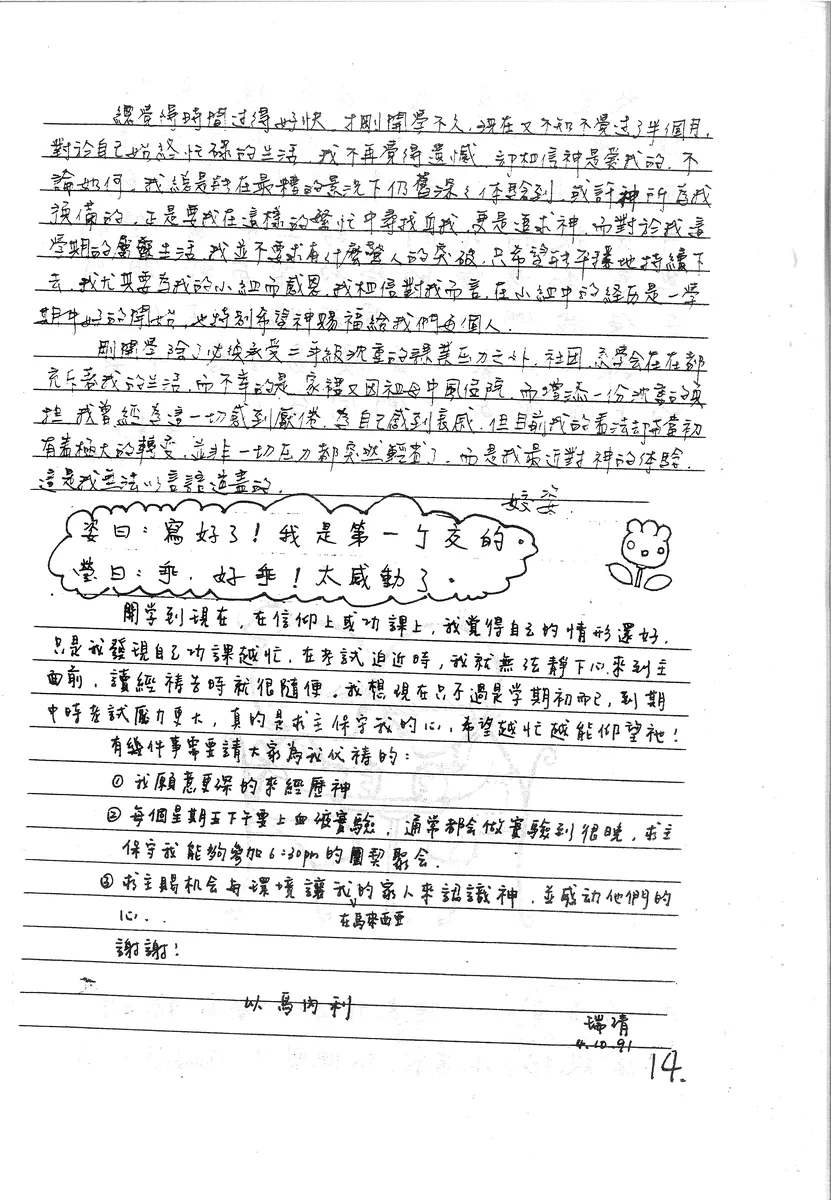 總覺得時間过得好快，才剛開學不久，現在又不知不覺过了半個月，
對於自己始終忙碌的生活，我不再覺得遺憾，卻相信神是愛我的，不
論如何，我總是能在最糟的景況下仍舊深深体驗到，或許神所為我
預備的，正是要我在這樣的繁忙中尋找自我，更是追求神，而對於我這
學期的靈觀生活，我並不要求有什麼驚人的突破，只希望能平穩地持續下
去，我尤其要為我的小組而感恩，我相信對我而言，在小組中的経历是一學
期中好的開始，也特別希望神賜福給我們每個人．
剛開學除了必須承受二年級沈重的課業压力之外，社团、系學会在在都
充斥著我的生活，而不幸的是，家裡又因祖母中風住院，而增添一份沈重的負
担，我曾經為這一切感到厭倦，為自己感到哀戚，但目前我的看法却與當初
有著極大的轉变，並非一切压力都突然輕省了，而是我最近對神的体驗，
這是我無法以言語道盡的．
姣姿．
姿曰：寫好了！我是第一个交的。
瑩曰：乖，好乖！太感動了。
開学到現在，在信仰上或功課上，我覺得自己的情形還好，
只是我發現自己功課越忙，在考試迫近時，我就無法靜下心來到主
面前，讀經禱告時就很隨便，我想現在只不過是学期初而已，到期
中時考試壓力更大，真的是求主保守我的心，希望越忙越能仰望祂！
有幾件事需要請大家為我代禱的：
① 我願意更深的來經歷神
② 每個星期五下午要上血液實驗，通常都会做實驗到很晚，求主
保守我能夠參加6:30pm的團契聚会．
③ 求主賜机会与環境讓我的家人來認識神，並感动他們的
在馬來西亞
心．．
謝謝！
以馬內利
瑞清
4.10.91
14.